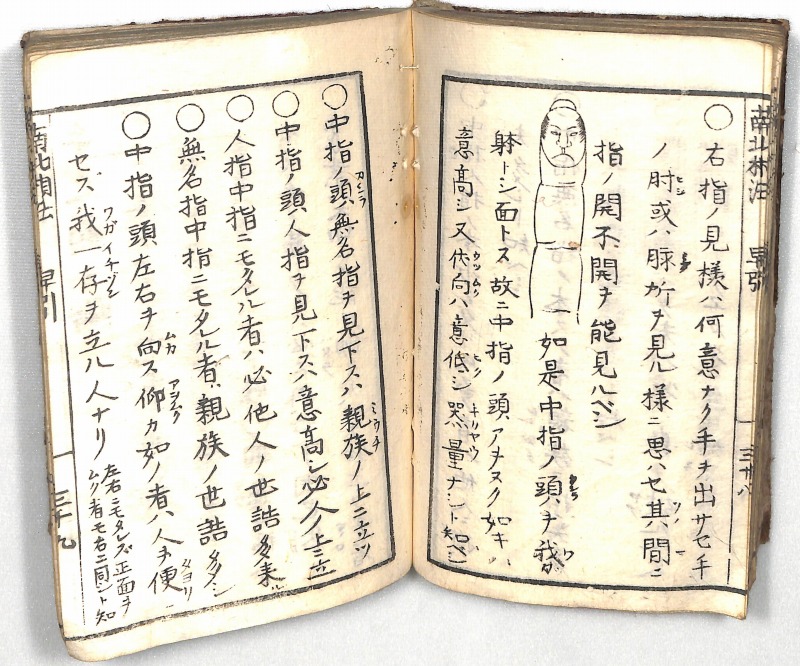 南北相法 早引 三十八
○ 右指ノ見様ハ何意ナク手ヲ出サセ手
ノ肘或ハ脉所ヲ見ル様ニ思ハセ其間ニ
指ノ開不開ヲ能見ルベシ
如是中指ノ頭ヲ我ガ
躰トシ面トス故ニ中指ノ頭アヲヌク如キハ
意高シ又伏向ハ意低シ器量ナシト知ベシ
○中指ノ頭無名指ヲ見下スハ親族ノ上ニ立ツ
○中指ノ頭人指ヲ見下スハ意高シ必人ノ上ニ立
○人指中指ニモタルル者ハ必他人ノ世話多来ル
○無名指中指ニモタルル者ハ親族ノ世話多シ
○中指ノ頭左右ヲ向ス仰カ如ノ者ハ人ヲ便
セズ我一存ヲ立ル人ナリ 左右ニモタレズ正面ヲ
ムク者モ右ニ同シト知
南北相法 早引 三十九